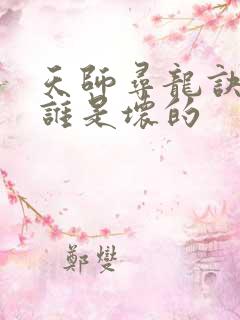 天師尋龍訣
誰是壞的
鄭燮